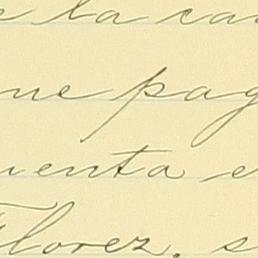 la ca
ne pag
uenta e
Florez, s